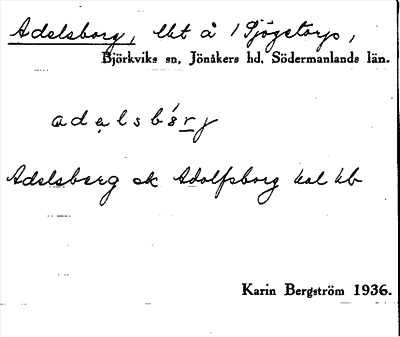 Adelsborg, lht å 1 Sjögetorp,
Björkviks sn, Jönåkers hd, Södermanlands län.
adelsbórj
Adelsberg ek Adolfsborg
Karin Bergström 1936.